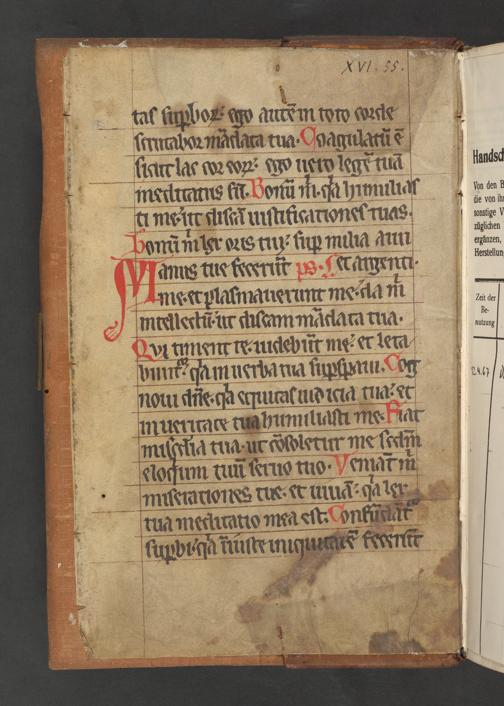 XVI. 55.
tas supboꝝ: ego autē in toto corde
scrutabor mādata tua. Coagulatū ē
sicut lac cor eoꝝ: ego uero legē tuā
meditatus sū. Bonū m̄ qa humilias
ti me: ut discā iustificationes tuas.
Bonū m̄ lex oris tui: sup milia auri
et argenti.
Manus tue fecerūt ps.
me et plasmauerunt me: da m̄
intellectū: ut discam mādata tua.
Qui timent te uidebūt me: et leta
bunt qa in uerba tua supspaui. Cog
noui dn̄e qa equitas iudicia tua: et
in ueritate tua humiliasti me. Fiat
misedia tua ut cōsoletur me sedm
eloqium tuū seruo tuo. Veniāt m̄
miserationes tue et uiuā: qa lex
tua meditatio mea est. Confundāt
supbi qa iniuste iniquitatē fecerūt
Handsc
Von den B
die von ih
sonstige V
züglichen
ergänzen,
Herstellun
Zeit der
Be-
nutzung